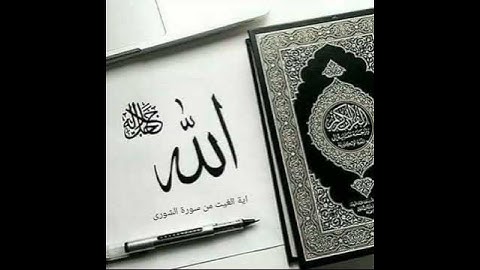 جل جلاله
الله
اية الغيت من سورة الشورى
القرآن الكريم